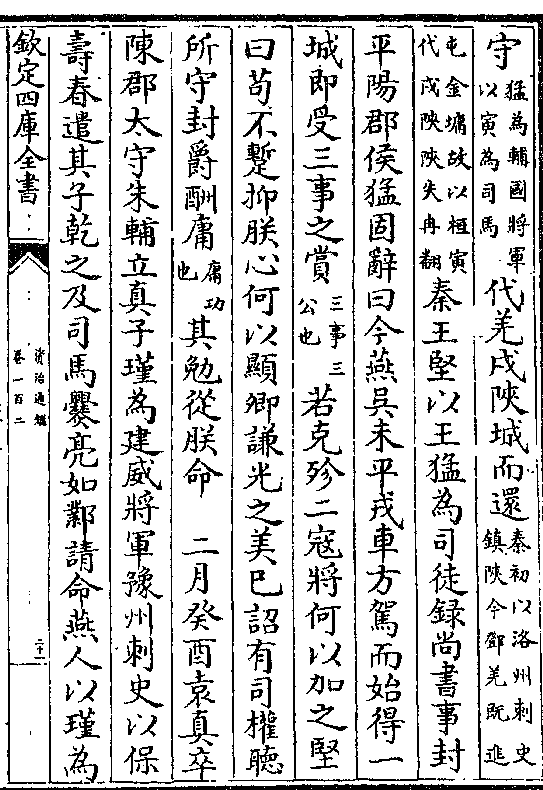 守猛為輔國將軍以寅為司馬代羌戍陜城而還秦初以洛州刺史鎮陜今鄧羌既進
屯金墉故以桓寅代戍陜陜失冉翻秦王堅以王猛為司徒録尚書事封
平陽郡侯猛固辭曰今燕吳未平戎車方駕而始得一
城即受三事之賞三事三公也若克殄二寇將何以加之堅
曰苟不蹔抑朕心何以顯卿謙光之美已詔有司權聽
所守封爵酬庸庸功也其勉從朕命　二月癸酉袁真卒
陳郡太守朱輔立真子瑾為建威將軍豫州刺史以保
壽春遣其子乾之及司馬爨亮如鄴請命燕人以瑾為
欽定四庫全書
資治通鑑
卷一百二